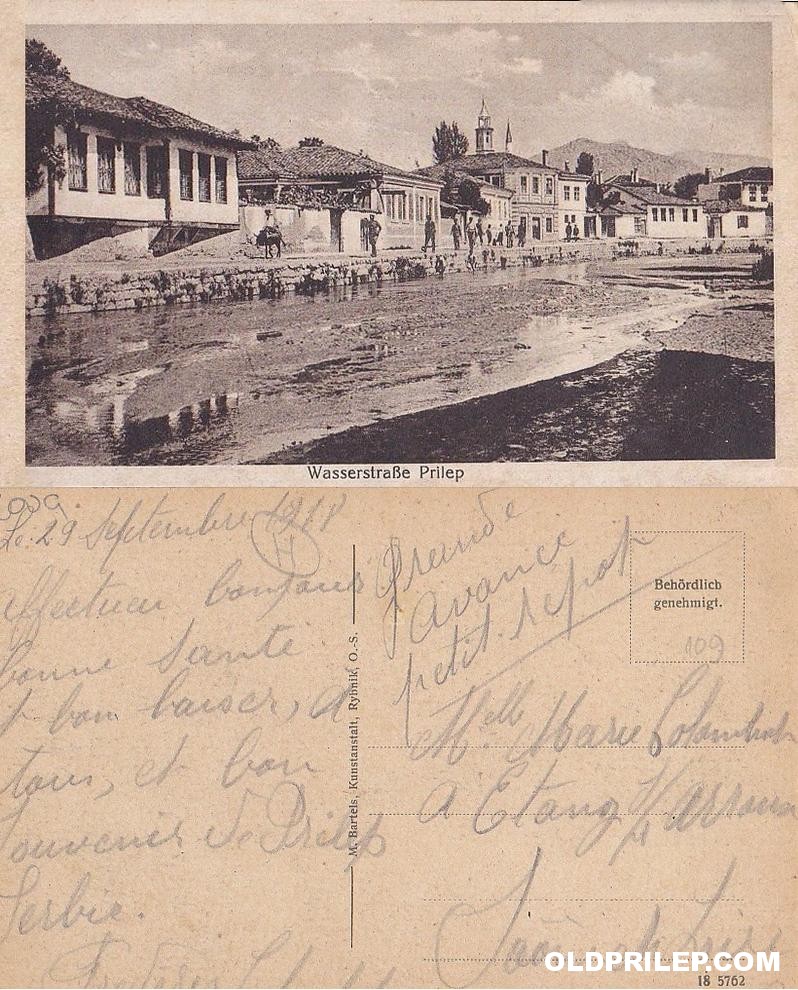 Wasserstraße Prilep
Le 29 Septembre 1918
Affectueux bonjour
bonne santé
et bon baiser, à
tous, et bon
Souvenir de Prilep
Serbie.
M. Bartels, Kunstanstalt, Rybnik, O.-S.
Grande
avance
petit repos
Behördlich
genehmigt.
109
Melle Marie
a Etang s/ Arroux
Saône et Loire
OLDPRILEP.COM
18 5762